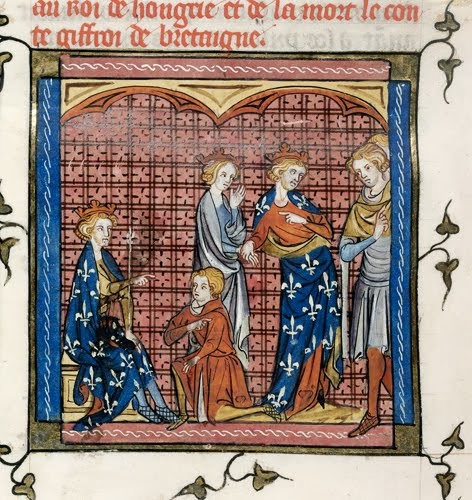 au Roi de hongrie et de la mort le con
te giffroi de bretaigne.